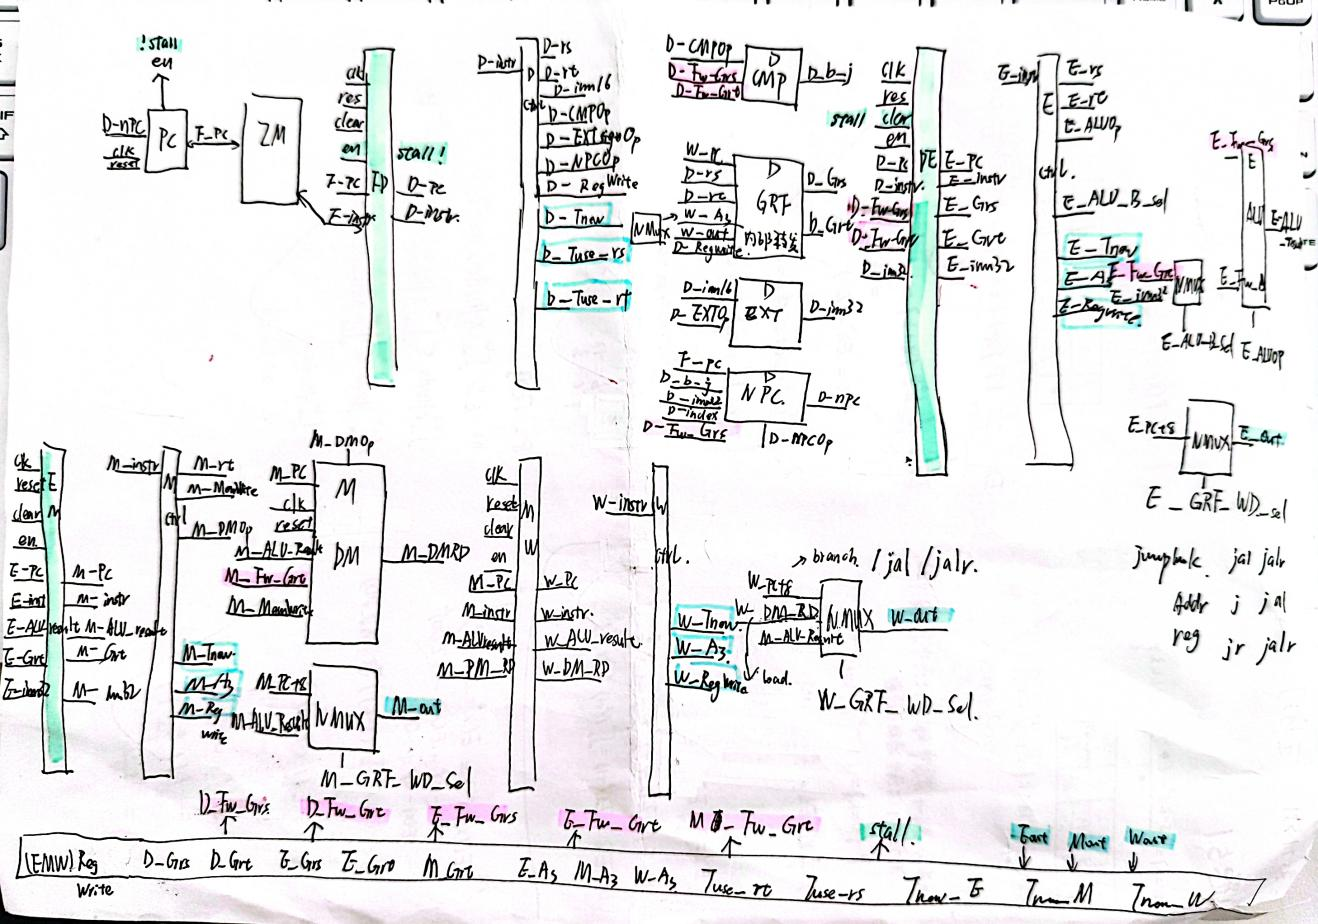 !stall
en
D-nPC
clk
reset
PC
F_PC
IM
clk
res
clear
en
F-PC
FD
stall!
D-PC
D-instr.
D-instr
D
ctrl
D-rs
D-rt
D-imm16
D-CMPOp
D-EXTsignOp
D-NPCOp
D-RegWrite
D-Tnew
D_Tuse_rs
D_Tuse_rt
D-CMPOp
D-Fw-Grs
D-Fw-Grt
D
CMP
D_b_j
NMUX
W_PC
D-rs
D-rt
W-A3
W-out
D-Regwrite.
D
GRF
内部转发
D_Grs
D_Grt
D-im16
D-EXTOp
D
EXT
D-im32
F-PC
D_b_j
D-imm32
D-index
D-Fw_Grs
D
NPC.
D-nPC
D-NPCOp
clk
res
stall
clear
en
D-PC
D-instr.
D-Fw-Grs
D-Fw-Grt
D_im32
DE
E_PC
E-instr
E_Grs
E_Grt
E-imm32
E-instr
E
ctrl.
E-rs
E-rt
E_ALUOp
E_ALU_B_sel
E_Tnew
E_A3
E-Regwrite.
E_Fw_Grt
E_imm32
NMUX
E_ALU_B_Sel
E_Fw_Grs
E
ALU
E-ALU
E_ALUOp
E_PC+8
NMUX
E_out
E_GRF_WD_sel
clk
reset
clear
en
E-PC
E-inst
E-ALU result
E-Grt
E-imm32
E
M
M-PC
M-instr
M-ALU_result
M-Grt
M-Imm32
M_instr
M
ctrl
M_rt
M-MemWrite
M_DMOp
M-Tnew
M-A3
M-Reg
write
M_DMOp
M_PC
clk
reset
M_ALU_Result
M_Fw_Grt
M_MemWrite
M
DM
M_DMRD
M_PC+8
M_ALU_Result
NMUX
M_out
M_GRF_WD_Sel
clk
reset
clear
en
M_PC
M_instr
M-ALUresult
M_DM_RD
M
W
W_PC
W_instr.
W_ALU_result.
W_DM_RD
W-instr
W
ctrl.
W_Tnew
W_A3.
W_RegWrite
branch. /jal /jalr.
W_PC+8
DM_RD
load.
NMUX
W_out
W_GRF_WD_Sel.
jal jalr
Addr j jal
reg jr jalr
D_Fw_Grs D_Fw_Grt E_Fw_Grs E_Fw_Grt M_Fw_Grt stall. Eout Mout Wout
(EMW) Reg D_Grs D_Grt E_Grs E_Grt M_Grt E_A3 M_A3 W_A3 Tuse_rt Tuse_rs Tnew_E Tnew_M Tnew_W
Write